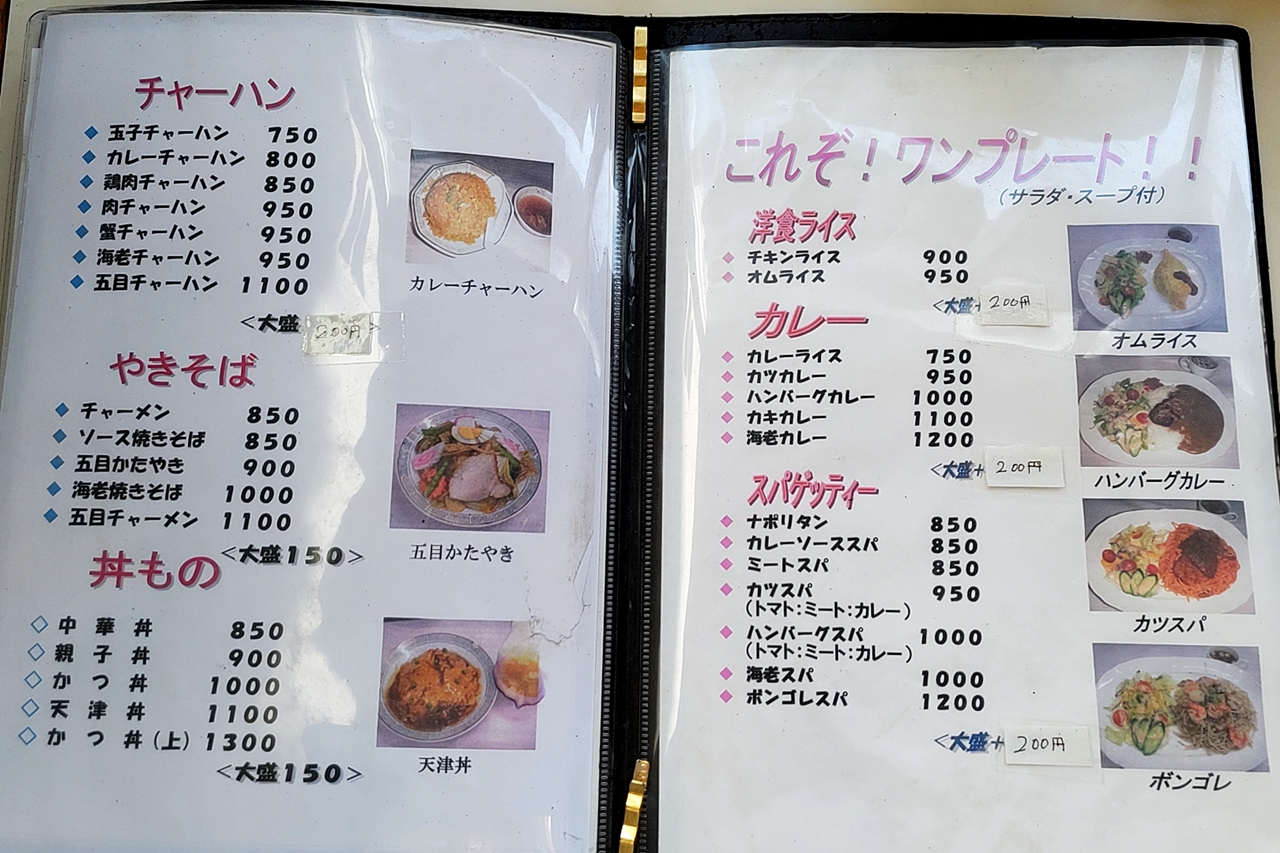 チャーハン
◆ 玉子チャーハン 750
◆ カレーチャーハン 800
◆ 鶏肉チャーハン 850
◆ 肉チャーハン 950
◆ 蟹チャーハン 950
◆ 海老チャーハン 950
◆ 五目チャーハン 1100
<大盛 200円>
カレーチャーハン
やきそば
◆ チャーメン 850
◆ ソース焼きそば 850
◆ 五目かたやき 900
◆ 海老焼きそば 1000
◆ 五目チャーメン 1100
<大盛150>
五目かたやき
丼もの
◇ 中華丼 850
◇ 親子丼 900
◇ かつ丼 1000
◇ 天津丼 1100
◇ かつ丼(上) 1300
<大盛150>
天津丼
これぞ!ワンプレート!!
(サラダ・スープ付)
洋食ライス
◆ チキンライス 900
◆ オムライス 950
<大盛+ 200円
オムライス
カレー
◆ カレーライス 750
◆ カツカレー 950
◆ ハンバーグカレー 1000
◆ カキカレー 1100
◆ 海老カレー 1200
<大盛+ 200円
ハンバーグカレー
スパゲッティー
◆ ナポリタン 850
◆ カレーソーススパ 850
◆ ミートスパ 850
◆ カツスパ 950
(トマト:ミート:カレー)
◆ ハンバーグスパ 1000
(トマト:ミート:カレー)
◆ 海老スパ 1000
◆ ボンゴレスパ 1200
<大盛+ 200円
カツスパ
ボンゴレ